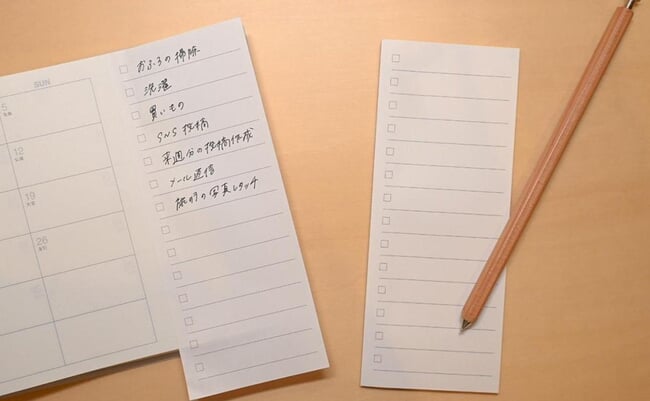 SUN
5
12
19
26
おふろの掃除
洗濯
買いもの
SNS 投稿
来週分の投稿作成
メール返信
の写真レタッチ